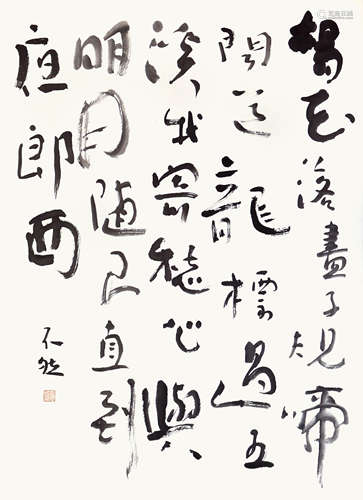 楊花落盡子規啼
聞道龍標過五
溪我寄愁心與
明月隨君直到
夜郎西
不然